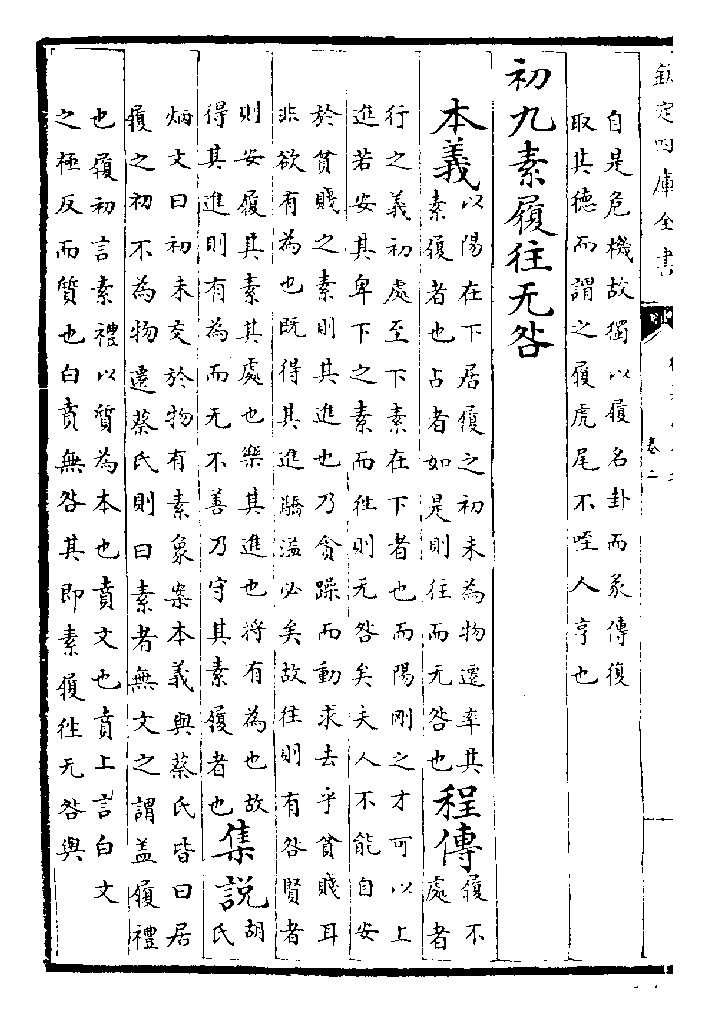 欽定四庫全書
卷二
自是危機故獨以履名卦而彖傳復
取其德而謂之履虎尾不咥人亨也
初九素履往无咎
本義以陽在下居履之初未為物遷率其
素履者也占者如是則往而无咎也程傳履不
處者
行之義初處至下素在下者也而陽剛之才可以上
進若安其卑下之素而往則无咎矣夫人不能自安
於貧賤之素則其進也乃貪躁而動求去乎貧賤耳
非欲有為也既得其進驕溢必矣故往則有咎賢者
則安履其素其處也樂其進也將有為也故
得其進則有為而无不善乃守其素履者也集說胡
氏
炳文曰初未交於物有素象案本義與蔡氏皆曰居
履之初不為物遷蔡氏則曰素者無文之謂盖履禮
也履初言素禮以質為本也賁文也賁上言白文
之極反而質也白賁無咎其即素履往无咎與